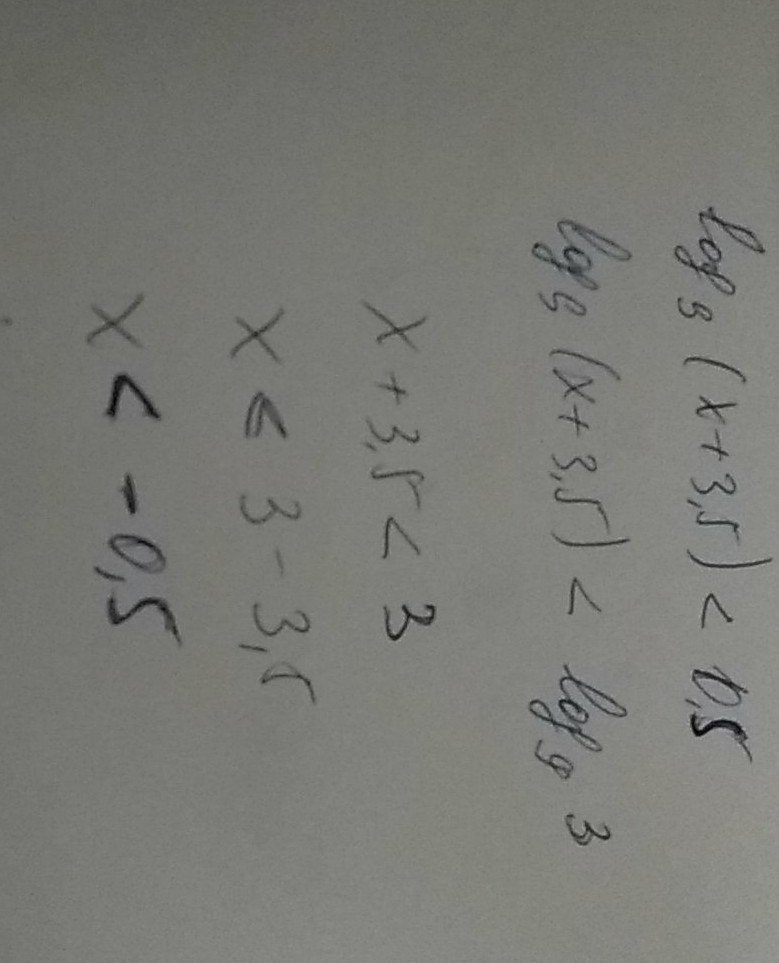 log₉ (x+3,5) < 0,5
log₉ (x+3,5) < log₉ 3
x + 3,5 < 3
x < 3 - 3,5
x < - 0,5